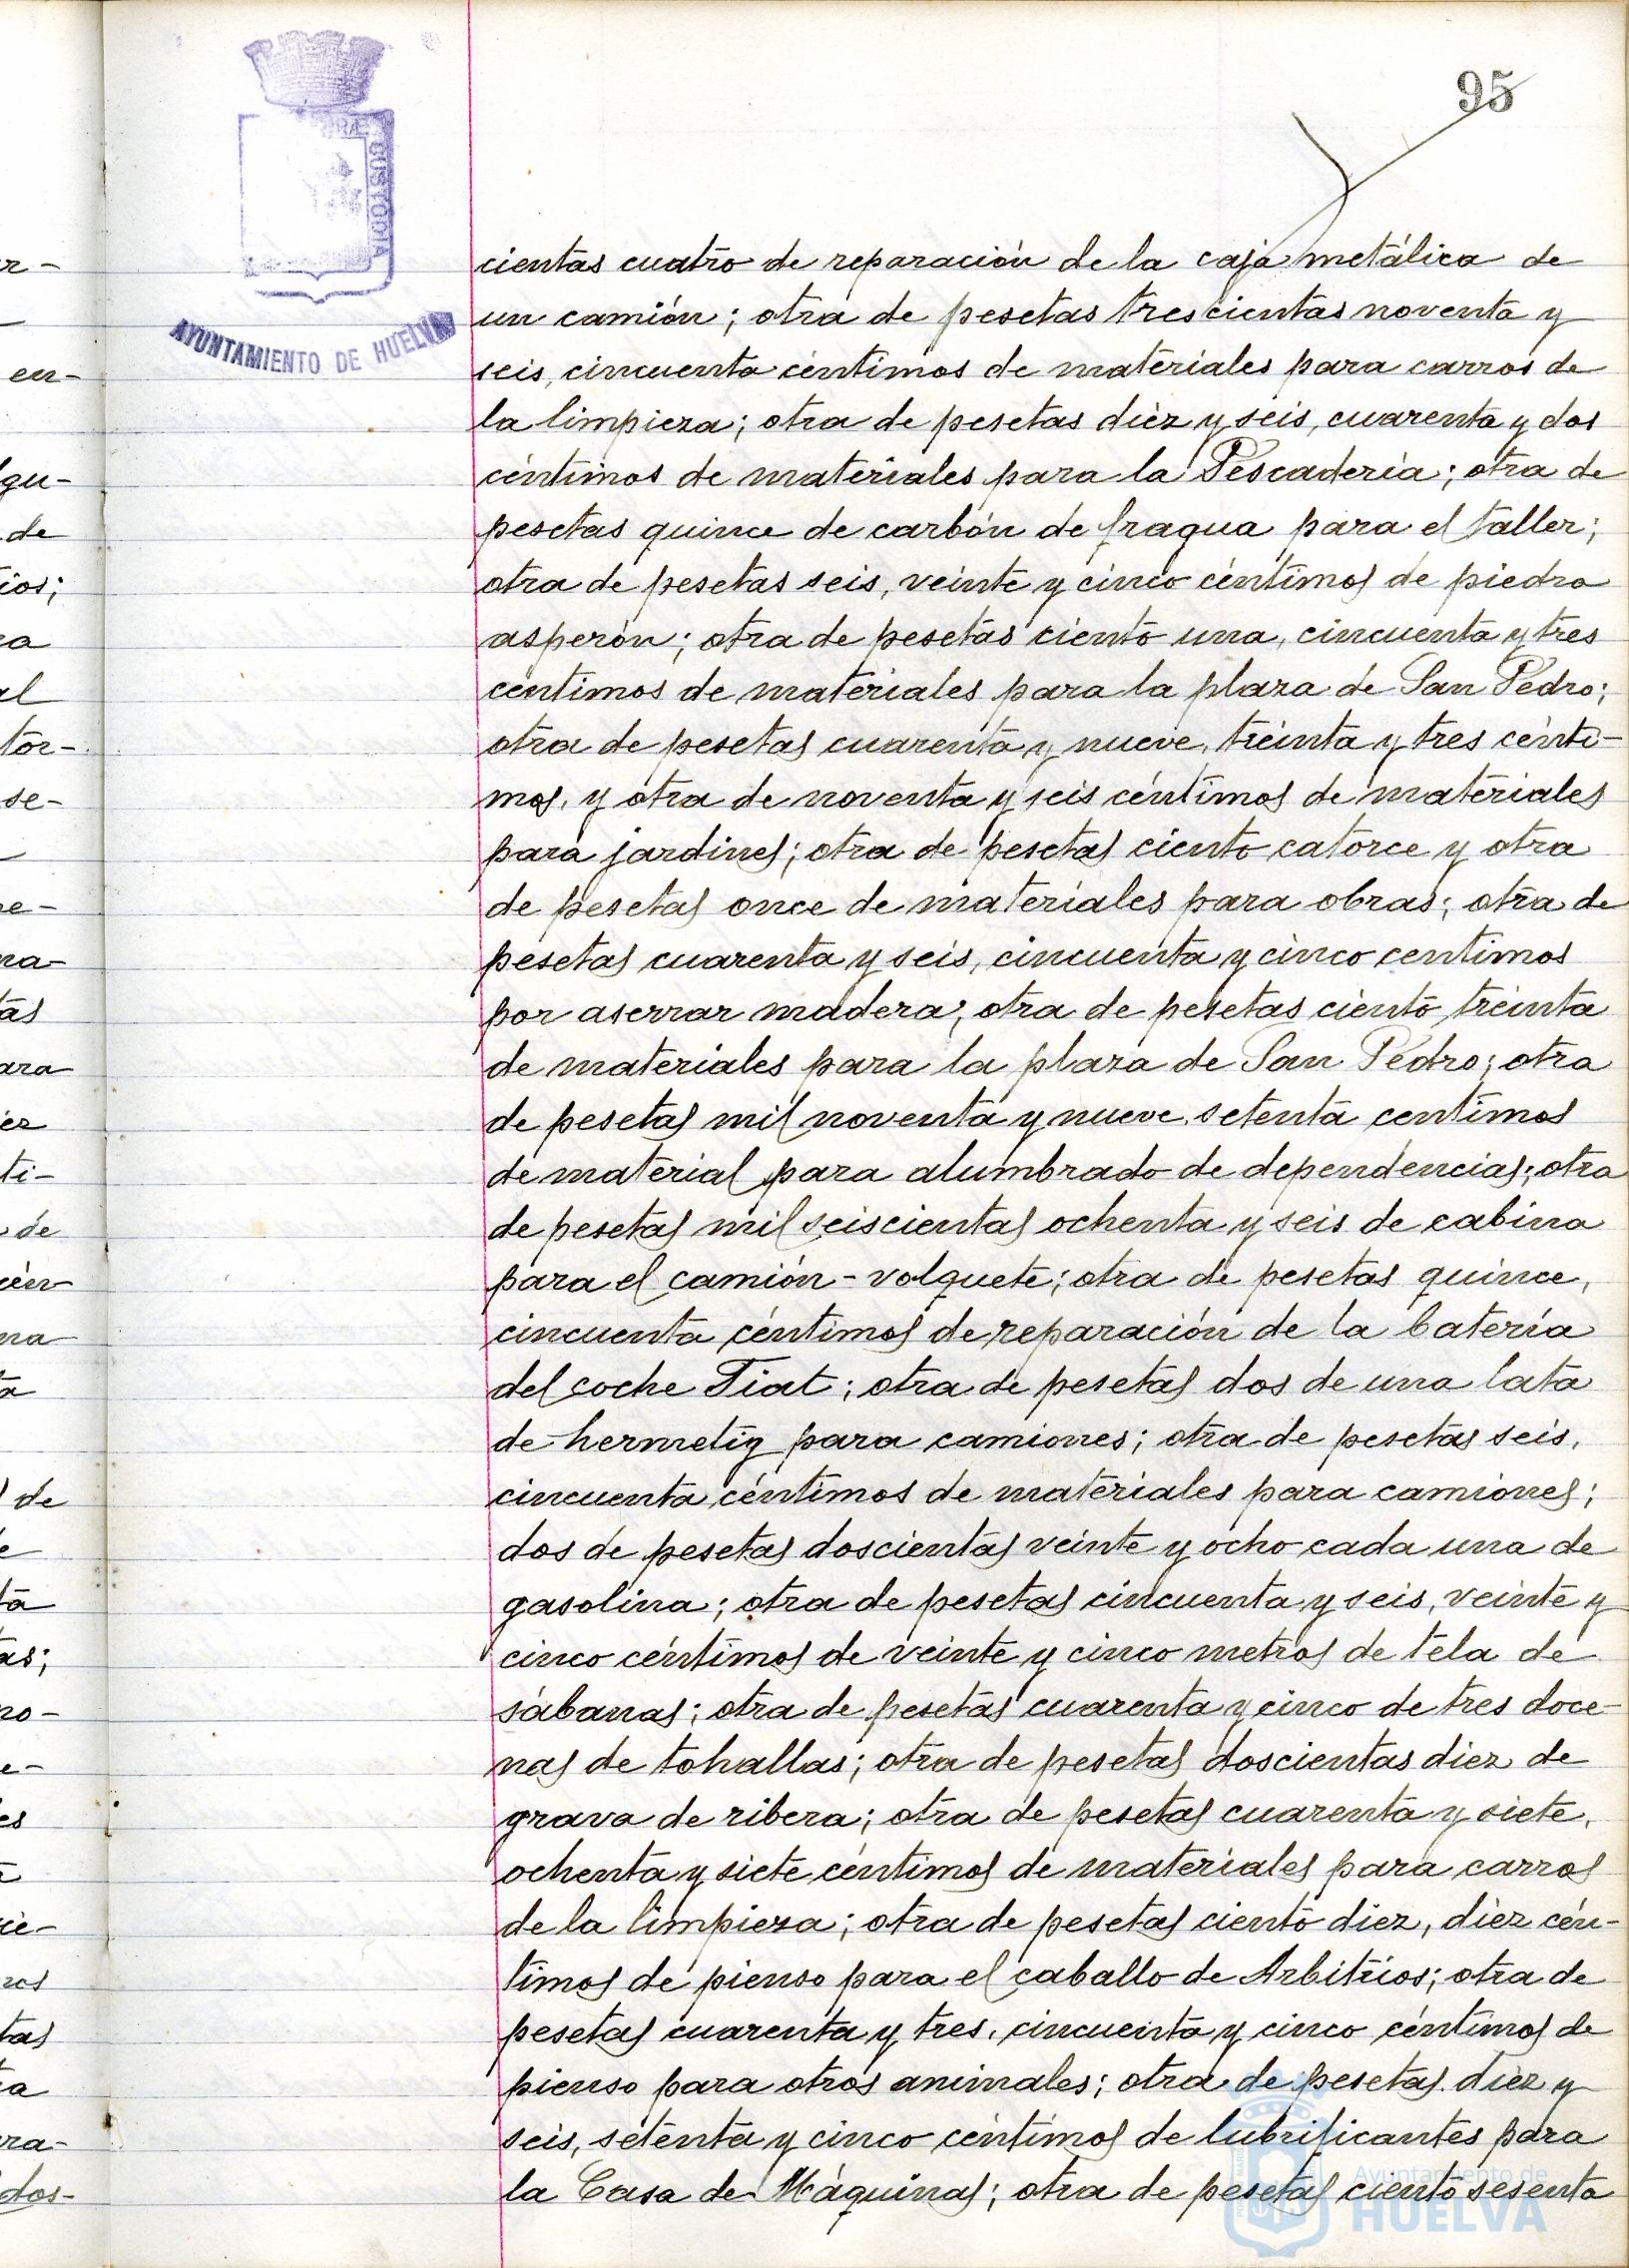 95
RÆ CUSTODIA
AYUNTAMIENTO DE HUELVA
cientas cuatro de reparación de la caja metálica de
un camión; otra de pesetas trescientas noventa y
seis, cincuenta céntimos de materiales para carros de
la limpieza; otra de pesetas diez y seis, cuarenta y dos
céntimos de materiales para la Pescadería; otra de
pesetas quince de carbón de fragua para el taller;
otra de pesetas seis, veinte y cinco céntimos de piedra
asperón; otra de pesetas ciento una, cincuenta y tres
céntimos de materiales para la plaza de San Pedro;
otra de pesetas cuarenta y nueve, treinta y tres cénti-
mos, y otra de noventa y seis céntimos de materiales
para jardines; otra de pesetas ciento catorce y otra
de pesetas once de materiales para obras; otra de
pesetas cuarenta y seis, cincuenta y cinco centimos
por aserrar madera; otra de pesetas ciento treinta
de materiales para la plaza de San Pedro; otra
de pesetas mil noventa y nueve, setenta centimos
de material para alumbrado de dependencias; otra
de pesetas mil seiscientas ochenta y seis de cabina
para el camión-volquete; otra de pesetas quince,
cincuenta céntimos de reparación de la batería
del coche Fiat; otra de pesetas dos de una lata
de hermetiq para camiones; otra de pesetas seis,
cincuenta céntimos de materiales para camiones;
dos de pesetas doscientas veinte y ocho cada una de
gasolina; otra de pesetas cincuenta y seis, veinte y
cinco céntimos de veinte y cinco metros de tela de
sábanas; otra de pesetas cuarenta y cinco de tres doce-
nas de tohallas; otra de pesetas doscientas diez de
grava de ribera; otra de pesetas cuarenta y siete,
ochenta y siete céntimos de materiales para carros
de la limpieza; otra de pesetas ciento diez, diez cén-
timos de pienso para el caballo de Arbitrios; otra de
pesetas cuarenta y tres, cincuenta y cinco céntimos de
pienso para otros animales; otra de pesetas diez y
seis, setenta y cinco céntimos de lubrificantes para
la Casa de Máquinas; otra de pesetas ciento sesenta
Ayuntamiento de
HUELVA